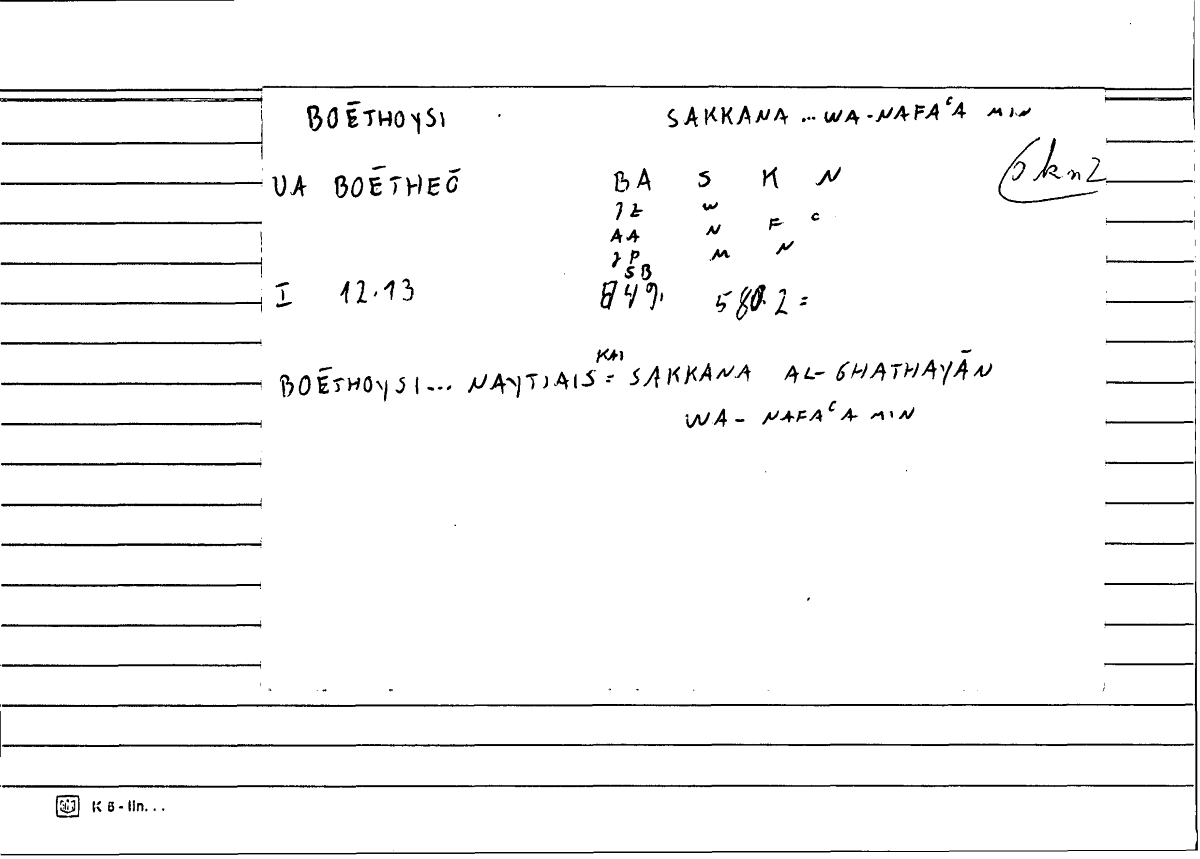 BOĒTHOYSI SAKKANA ... WA-NAFAᶜA MIN
VA BOĒTHEŌ BA S K N
JZ W
AA N F ᶜ
JP M N
SB
I 12.13 849, 580.2 =
KAI
BOĒTHOYSI... NAYTIAIS = SAKKANA AL-GHATHAYĀN
WA- NAFAᶜA MIN
K 6 - lin...